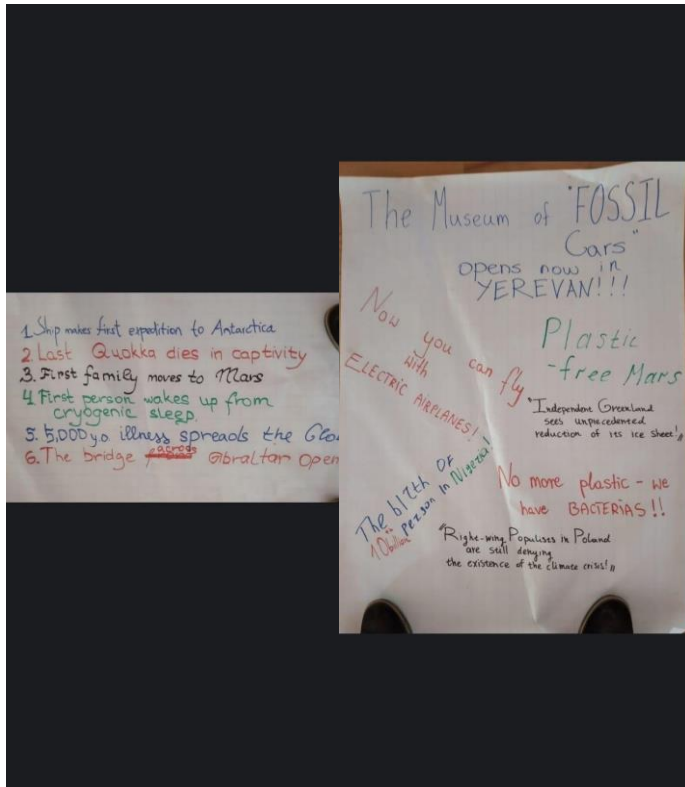 1. Ship makes first expedition to Antarctica
2. Last Quokka dies in captivity
3. First family moves to Mars
4. First person wakes up from
cryogenic sleep.
5. 5,000 y.o. illness spreads the Glo
6. The bridge across Gibraltar Open
The Museum of "FOSSIL
Cars"
opens now in
YEREVAN!!!
Now you can fly
with
ELECTRIC AIRPLANES!
Plastic
-free Mars
"Independent Greenland
sees unprecedented
reduction of its ice sheet!"
The bizth OF
10 billion person in Nigeria!
No more plastic - we
have BACTERIAS!!
"Right-wing Populists in Poland
are still denying
the existence of the climate crisis!"